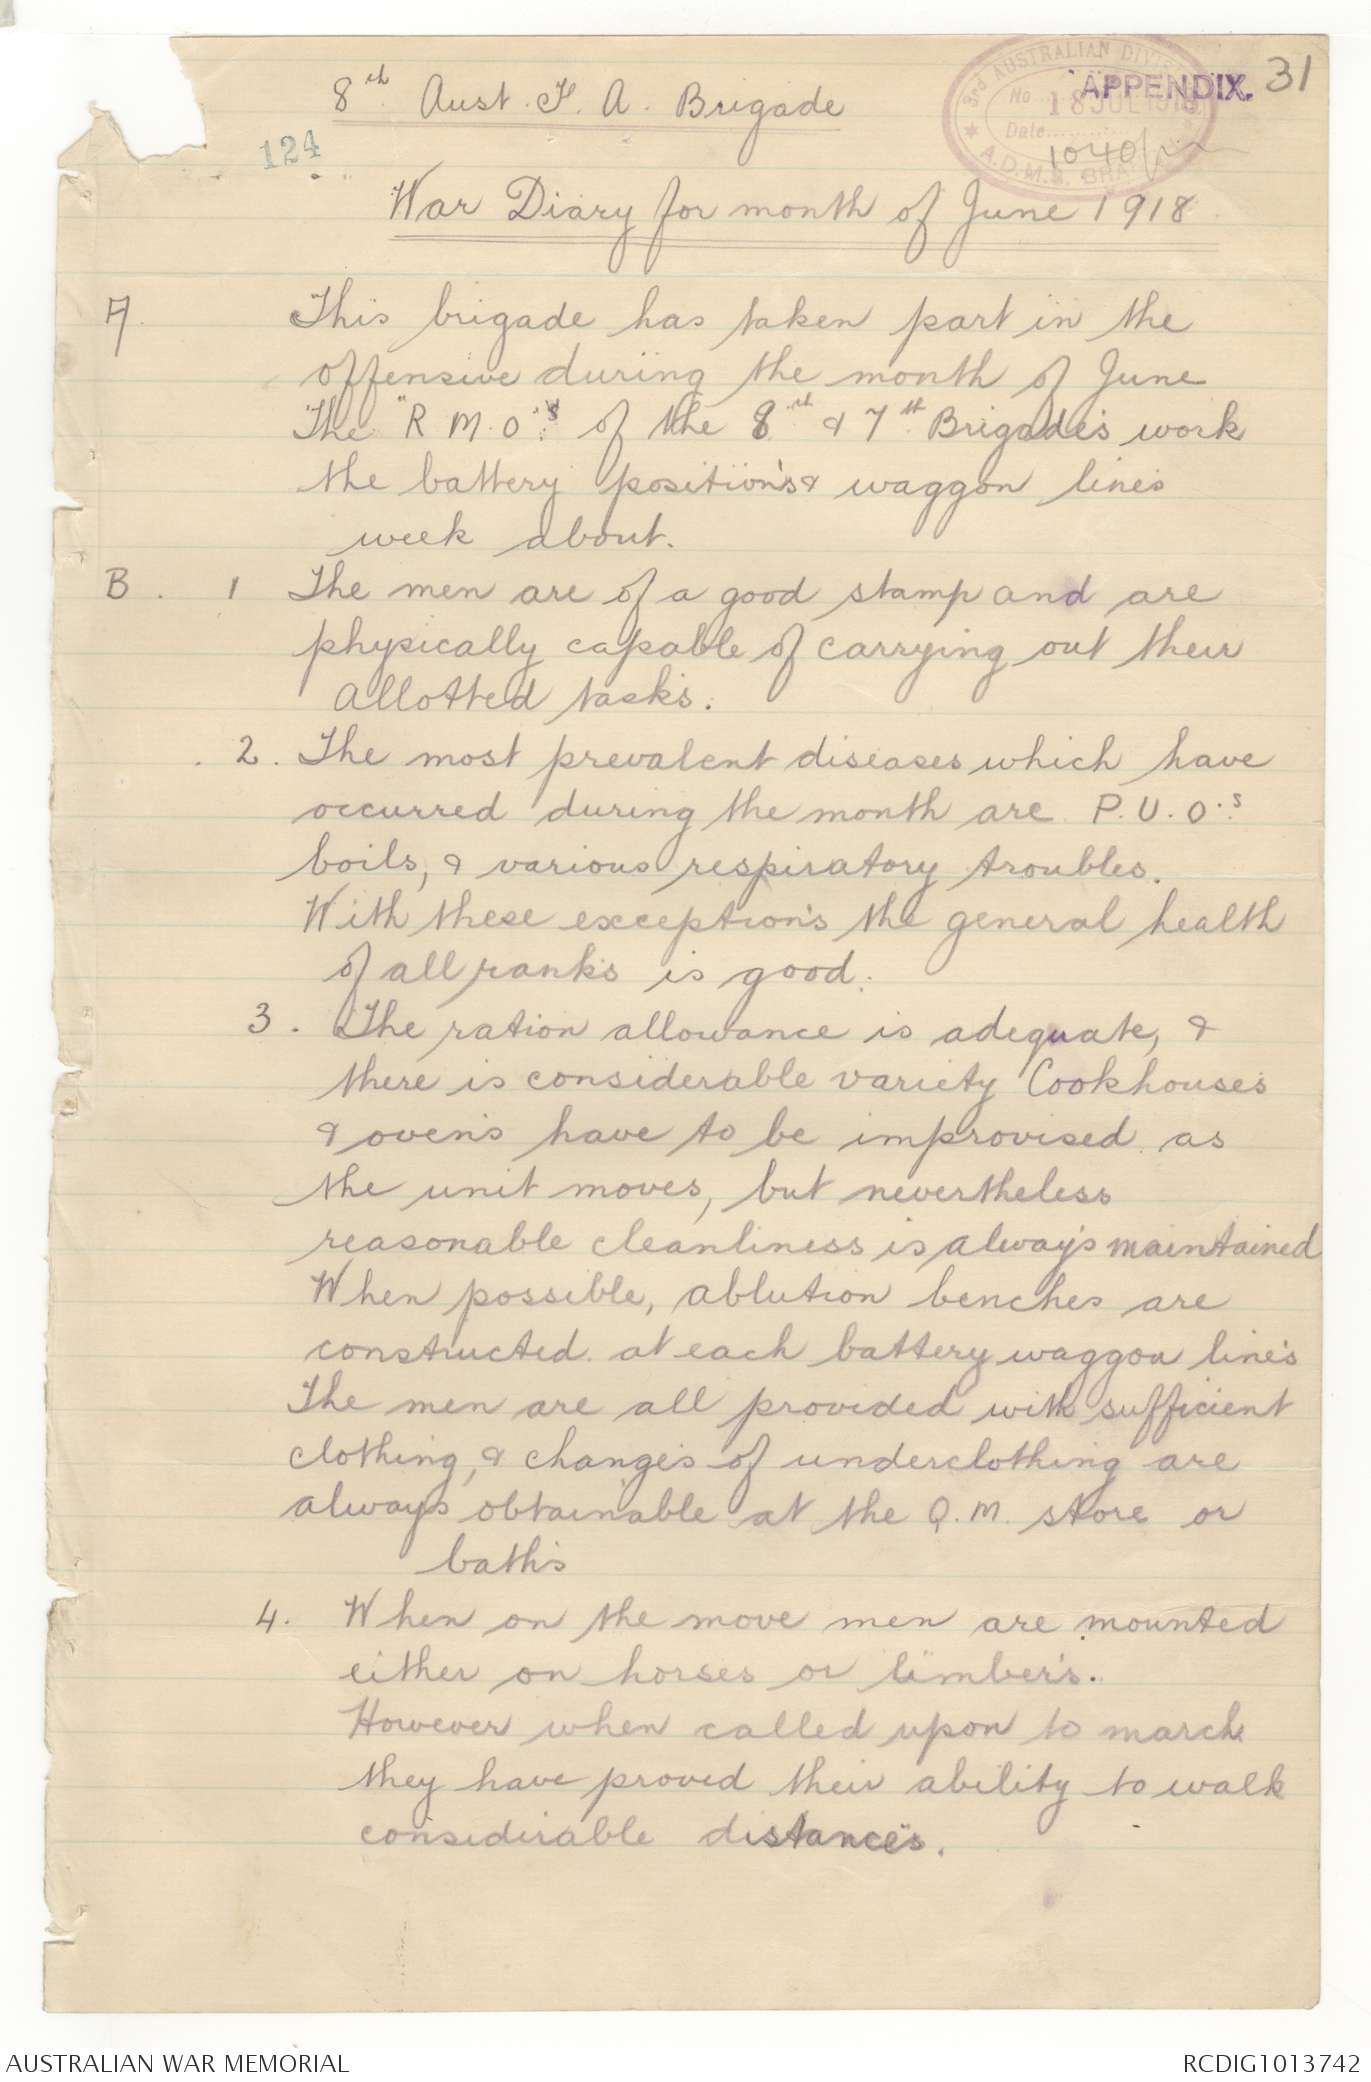 8th Aust. F. A. Brigade
APPENDIX. 31
3rd AUSTRALIAN DIVIS
No.
18 JUL 1918
Date
1040
A.D.M.S.
124
War Diary for month of June 1918
A. This brigade has taken part in the
offensive during the month of June
The "R M.O"s of the 8th & 7th Brigades work
the battery positions & waggon lines
week about.
B. 1 The men are of a good stamp and are
physically capable of carrying out their
allotted tasks.
2. The most prevalent diseases which have
occurred during the month are P.U.O.s
boils, & various respiratory troubles.
With these exceptions the general health
of all ranks is good.
3. The ration allowance is adequate, &
there is considerable variety Cookhouses
& ovens have to be improvised as
the unit moves, but nevertheless
reasonable cleanliness is always maintained
When possible, ablution benches are
constructed at each battery waggon lines
The men are all provided with sufficient
clothing, & changes of underclothing are
always obtainable at the Q.M. store or
baths
4. When on the move men are mounted
either on horses or limbers.
However when called upon to march
they have proved their ability to walk
considerable distances.
AUSTRALIAN WAR MEMORIAL
RCDIG1013742